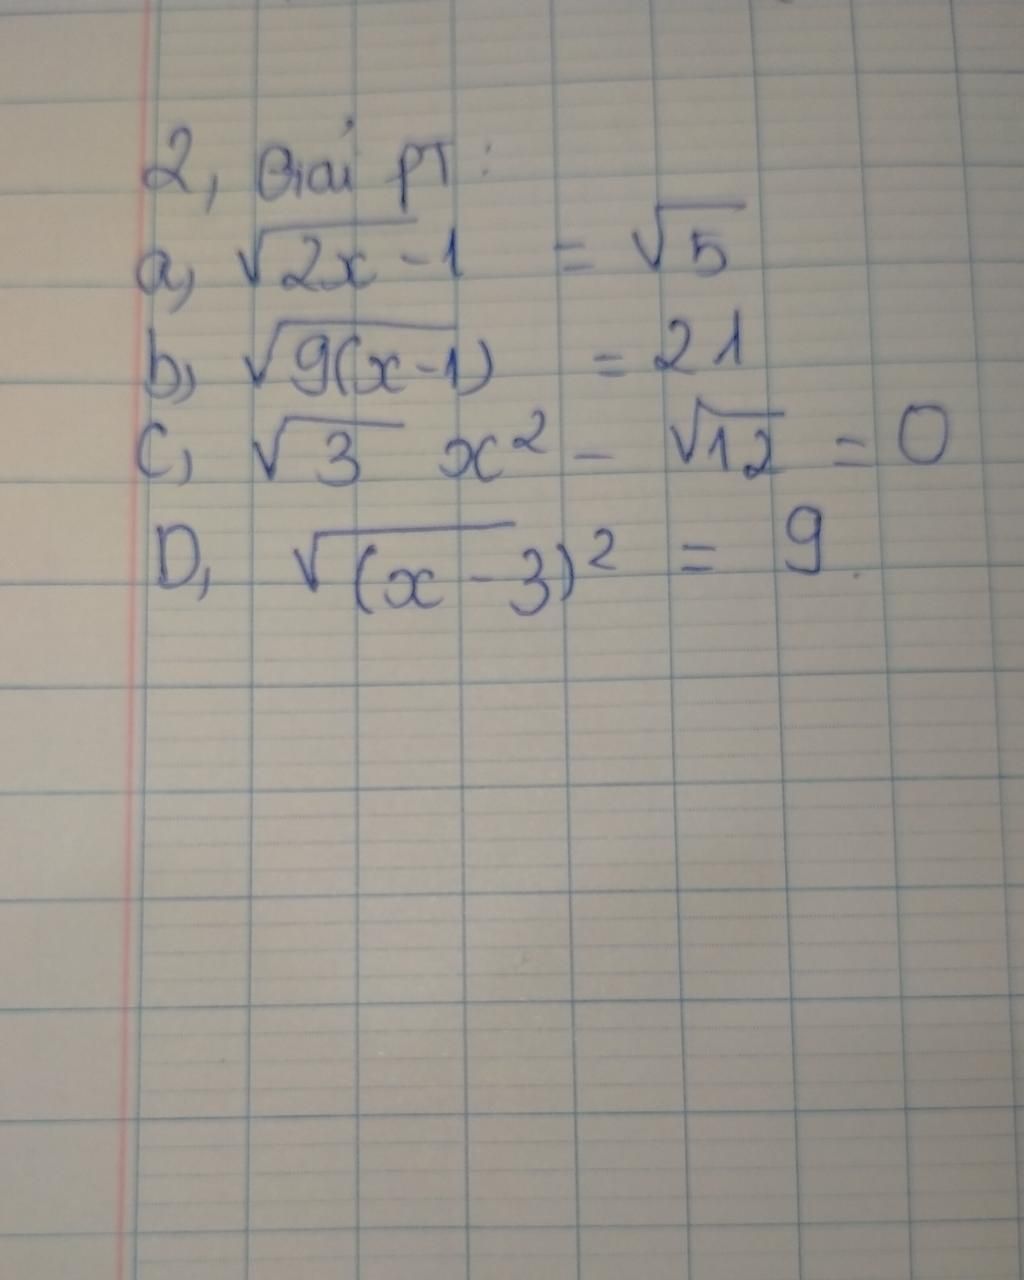 2, Giải PT:
a, √2x - 1 = √5
b, √9(x-1) = 21
C, √3 x² - √12 = 0
D, √(x - 3)² = 9.